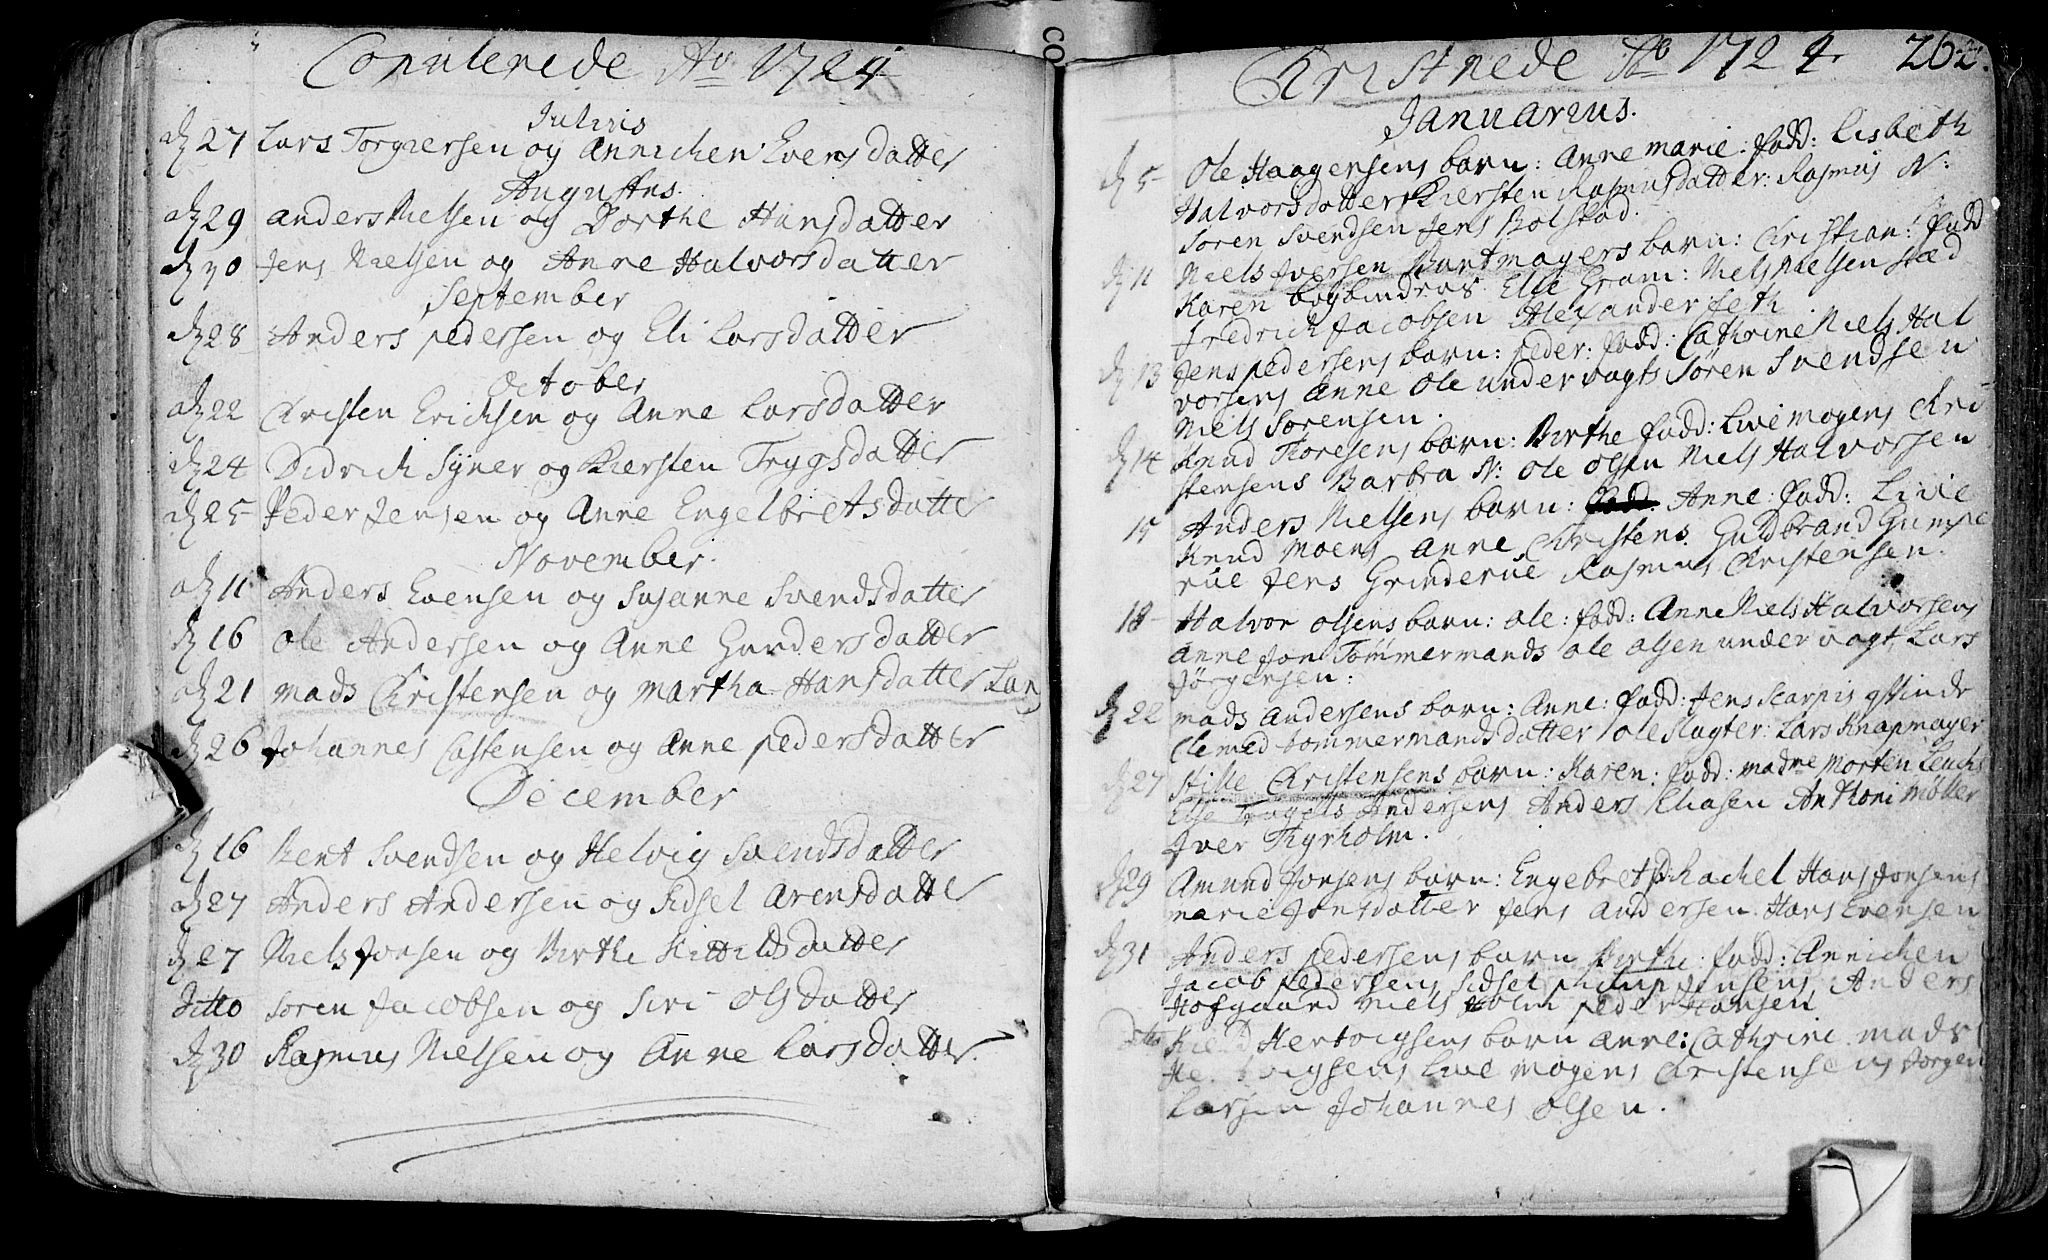 Copulerede Ao 1724
Julius
d 27 Lars Torgiersen og Annichen Evensdatter
Augustus.
d 29 anders Nielsen og Dorthe Hansdatter
d 30 Jens Nielsen og Anne Halvorsdatter
September
d 28 Anders pedersen og Eli Larsdatter
October
d 22 Christen Erichsen og Anne Larsdatter
d 24 Didrich Syner og Kiersten Trygsdatter
d 25 Peder Jensen og Anne Engelbretsdatter
November.
d 11 Anders Evensen og Susanne Svendsdatter
d 16 Ole Andersen og Anne Gundersdatter
d 21 mads Christensen og Martha Hansdatter Lan
d 26 Johannes Castensen og Anne pedersdatter
December
d 16 Bent Svendsen og Helvig Svendsdatter
d 27 Anders Andersen og Sidsel Arensdatter
d 27 Niels Jonsen og Birthe Kittildsdatter
Ditto Soren Jacobsen og Siri Olsdatter
d 30 Rasmus Nielsen og Anne Larsdatter.
Christnede Ao 1724. 262.
Januarius.
d 5 Ole Haagensens barn: Anne marie: fadd: Lisbeth
Halvorsdatter Kiersten Rasmusdatter: Rasmus N:
Soren Svendsen Jens Bolstad.
d 11 Niels Iversen Buntmagers barn: Christian: fadd
Karen bogbinders Else Gram: Niels Nielsen stæd
fredrich Jacobsen Alexander feth
d 13 Jens pedersens barn: peder: fadd: Cathrine Niels Hal
vorsens Anne Ole undervagts Sören Svendsen
Niels Sörensen.
d 14 Knud Thoresens barn: Birthe fadd: Live mogens Chri
stensens Barbra N: ole olsen Niels Halvorsen
15 Anders Nielsens barn: Anne: fadd: Livie
Knud moens Anne Christens. Guldbrand Gumpe
rue Jens Grinderue Rasmus Christensen.
18 Halvor olsens barn: ole: fadd: Anne Niels Halvorsens
Anne Jon Tömmermands ole olsen undervagt, Lars
Jörgensen:
d 22 mads Andersens barn: Anne: fadd: Jens Scarpis qvinde
Clemed tommermandsdatter ole slagter: Lars Knapmager
d 27 Stille Christensens barn: Karen: fadd: madme Morten Leuchs
Else Trugels Andersens Anders Eliasen Anthoni Möller
Iver Thyrholm.
d 29 Amund Jonsens barn: Engebret Rachel Hans Jonsens
marie Jonsdatter Jens Andersen. Hans Evensen
d 31 Anders pedersens barn Birthe: fadd: Annichen
Jacob pedersens Sidsel Jensens, Anders
Hofgaard Niels Holm peder Hansen
Ditto Hertvigsens barn Anne: Cathrine mads
He vigsens Live mogens Christensens Jörgen
Larsen Johannes Olsen.